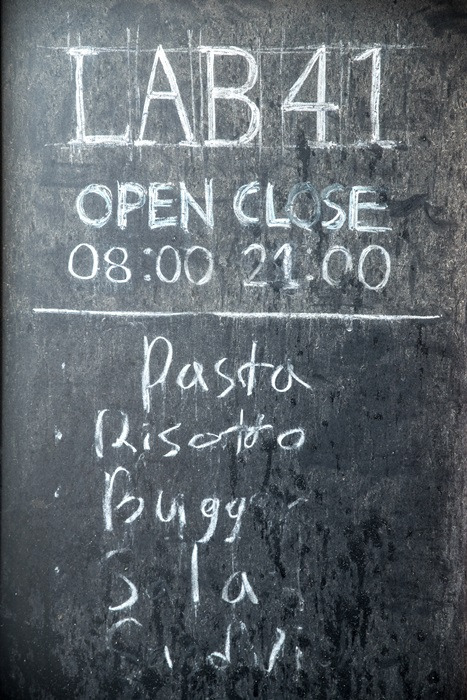 LAB 41
OPEN CLOSE
08:00 21:00
Pasta
Risotto